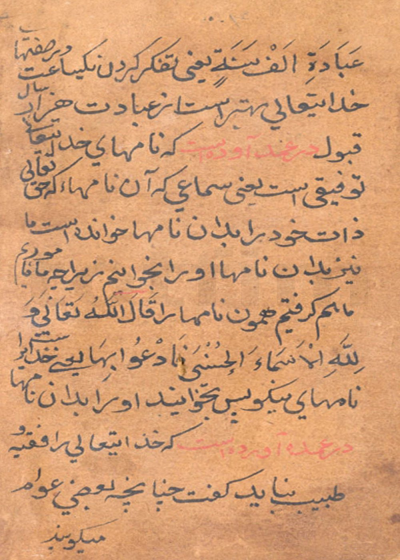 عِبَادَةِ اَلْفِ سَنَةٍ یعنی تفکر کردن یکساعت و بر صفتها
خدایتعالی بهتر است از عبادت هزار سال
قبول در عمده آورده است که نامهای خدایتعالی
توفیقی است یعنی سماعی که آن نامهاء که حق تعالی
ذات خود را بدان نامها خوانده است ما
نیز بدان نامها او را بخوانیم زیرا چه ما مامورایم
ما هم گرفتیم همون نامها را قَالَ اللّٰهُ تَعَالٰی وَ
لِلّٰهِ الْاَسْمَاءُ الْحُسْنٰی فَادْعُوْا بِهَا یعنی خدایرا است
نامهای نیکو پس بخوانید او را بدان نامها
در عمده آورده است که خدایتعالی را فقیه و
طبیب نباید گفت چنانچه بعضی عوام
میگویند